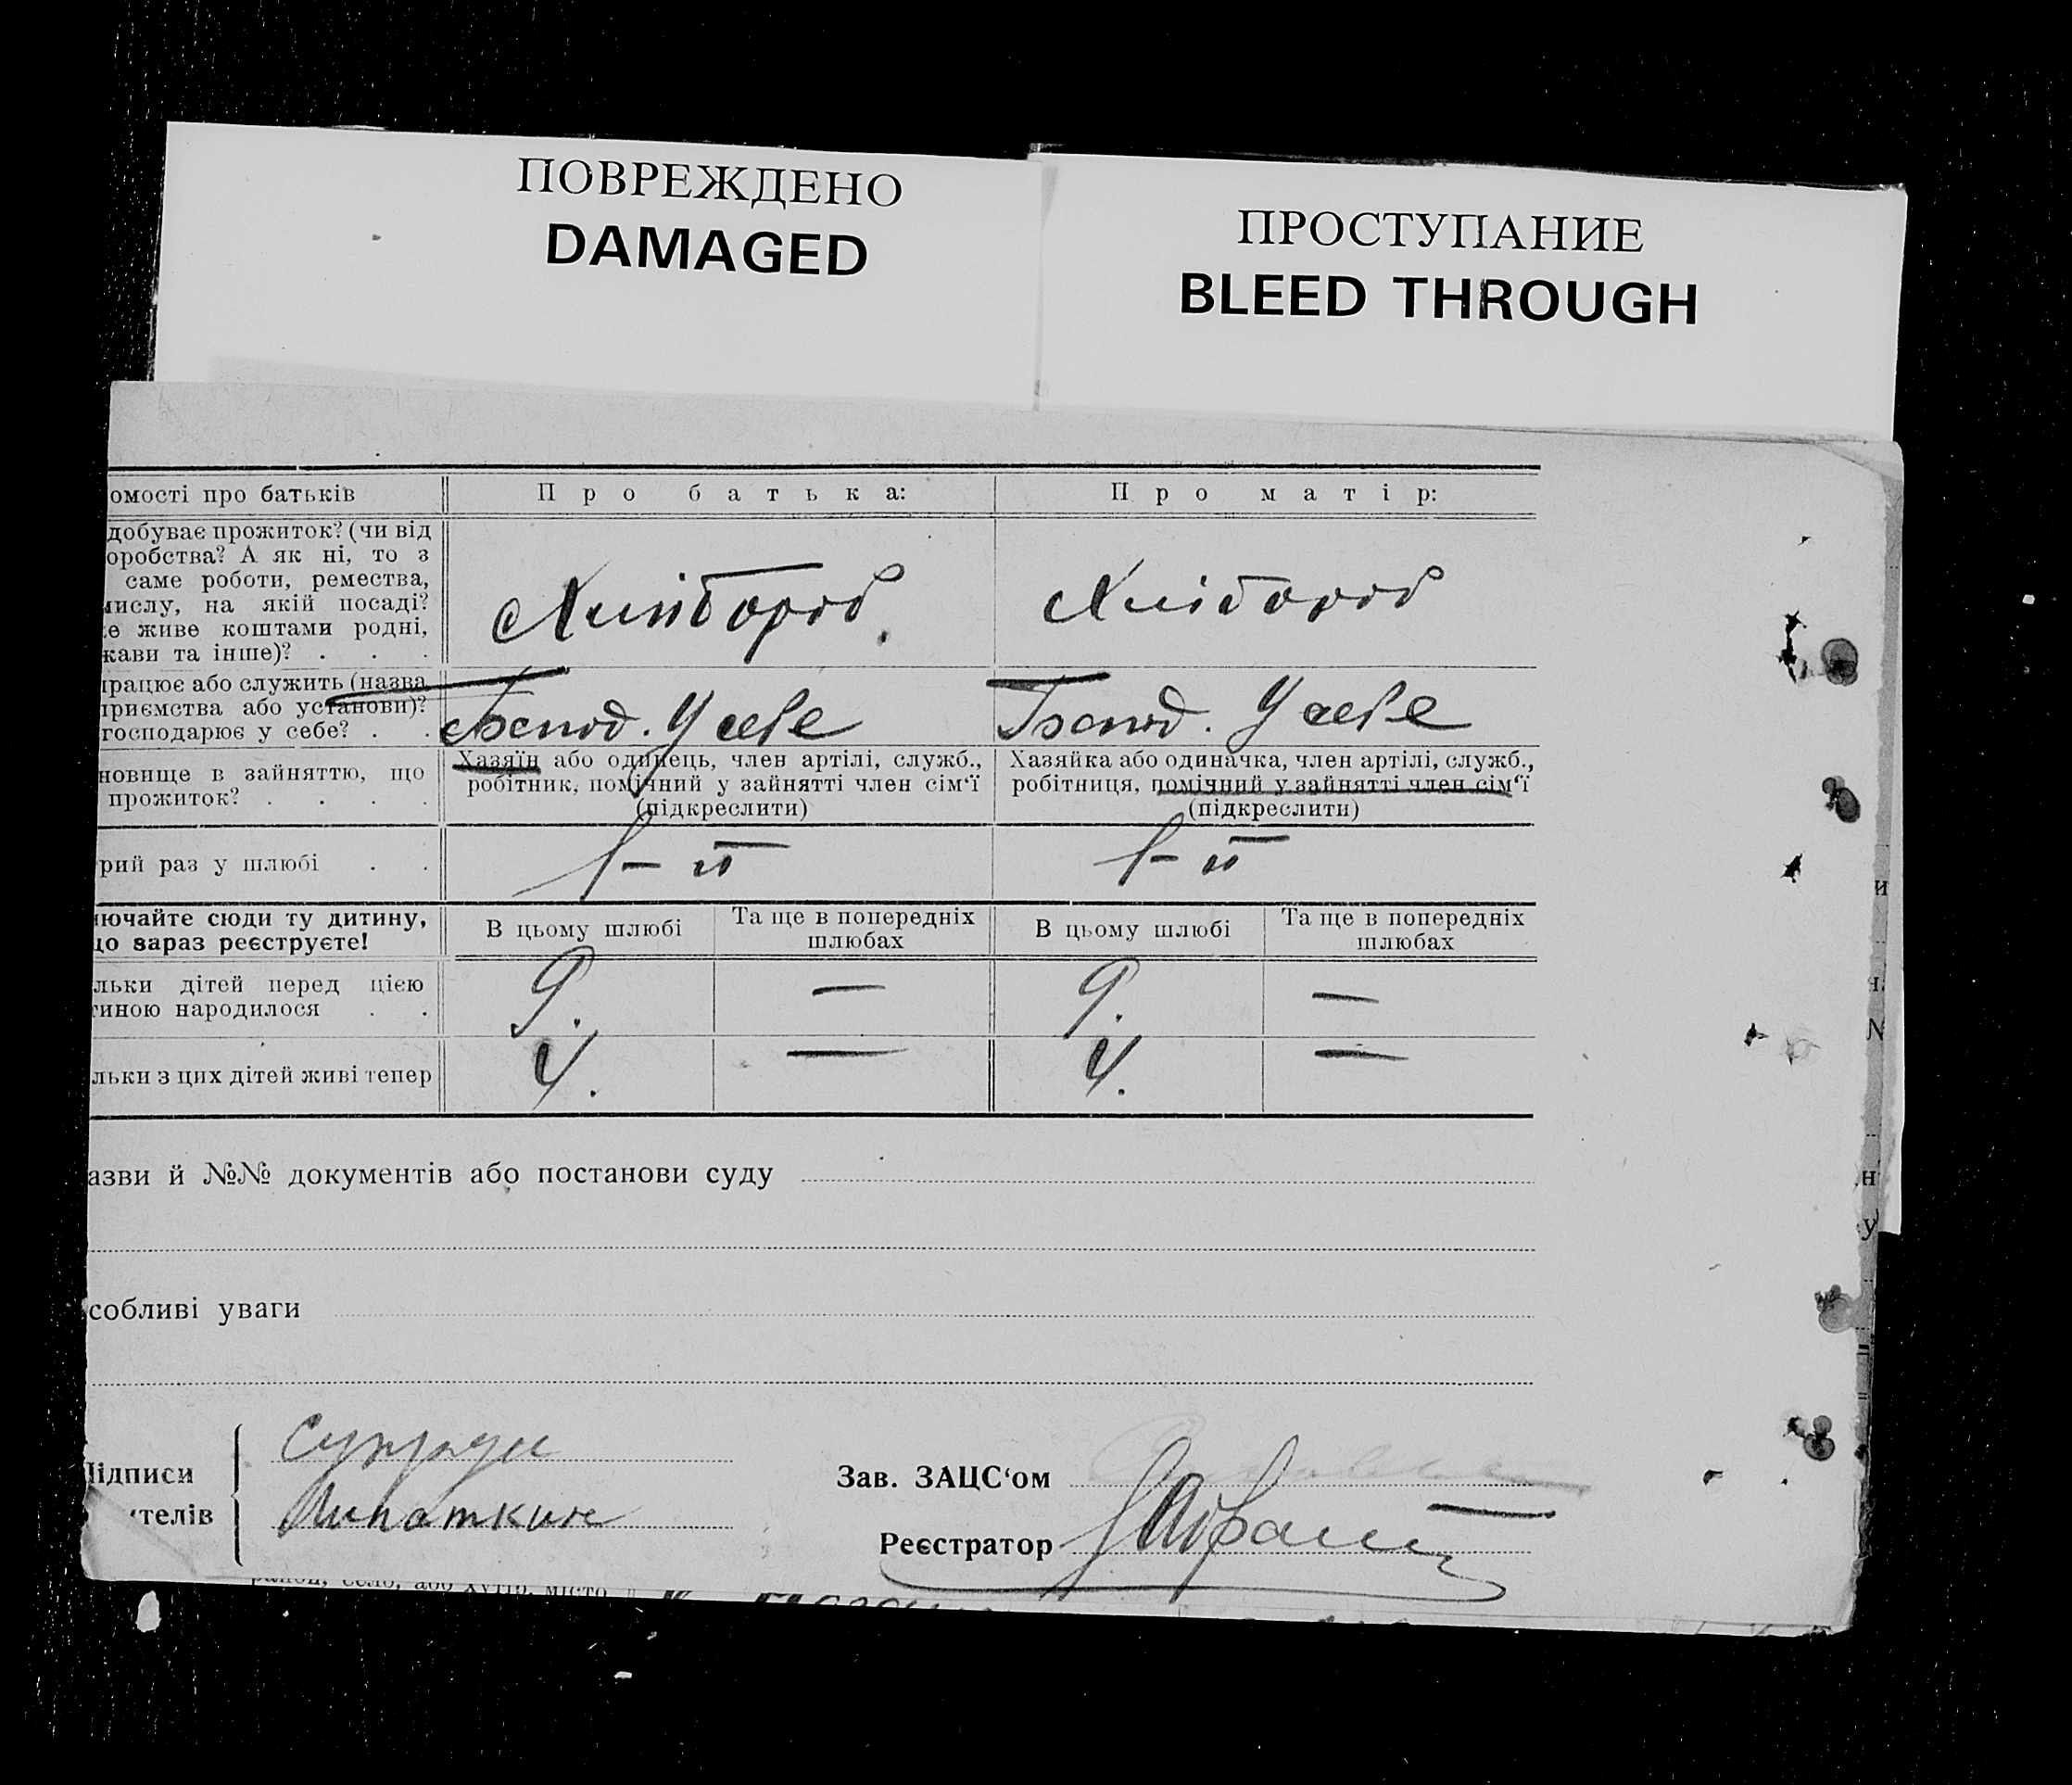 ПОВРЕЖДЕНО
DAMAGED
ПРОСТУПАНИЕ
BLEED THROUGH
омості про батьків
Про батька:
Про матір:
добуває прожиток? (чи від
оробства? А як ні, то з
саме роботи, ремества,
мислу, на якій посаді?
е живе коштами родні,
жави та інше)? . . .
Хлібороб.
Хлібороб
працює або служить (назва
приємства або установи)?
господарює у себе? . .
Господ. У себе
Господ. У себе
новище в зайняттю, що
прожиток? . . . .
Хазяїн або одинець, член артілі, служб.,
робітник, помічний у зайнятті член сім‘ї
(підкреслити)
Хазяйка або одиначка, член артілі, служб.,
робітниця, помічний у зайнятті член сім‘ї
(підкреслити)
рий раз у шлюбі . .
1-й
1-й
ючайте сюди ту дитину,
що зараз реєструєте!
В цьому шлюбі
Та ще в попередніх
шлюбах
В цьому шлюбі
Та ще в попередніх
шлюбах
льки дітей перед цією
тиною народилося . .
9.
—
9.
—
льки з цих дітей живі тепер
4.
—
4.
—
азви й №№ документів або постанови суду
собливі уваги
Підписи
ителів
Зав. ЗАЦС‘ом
Реєстратор
район, село, або хутір, місто